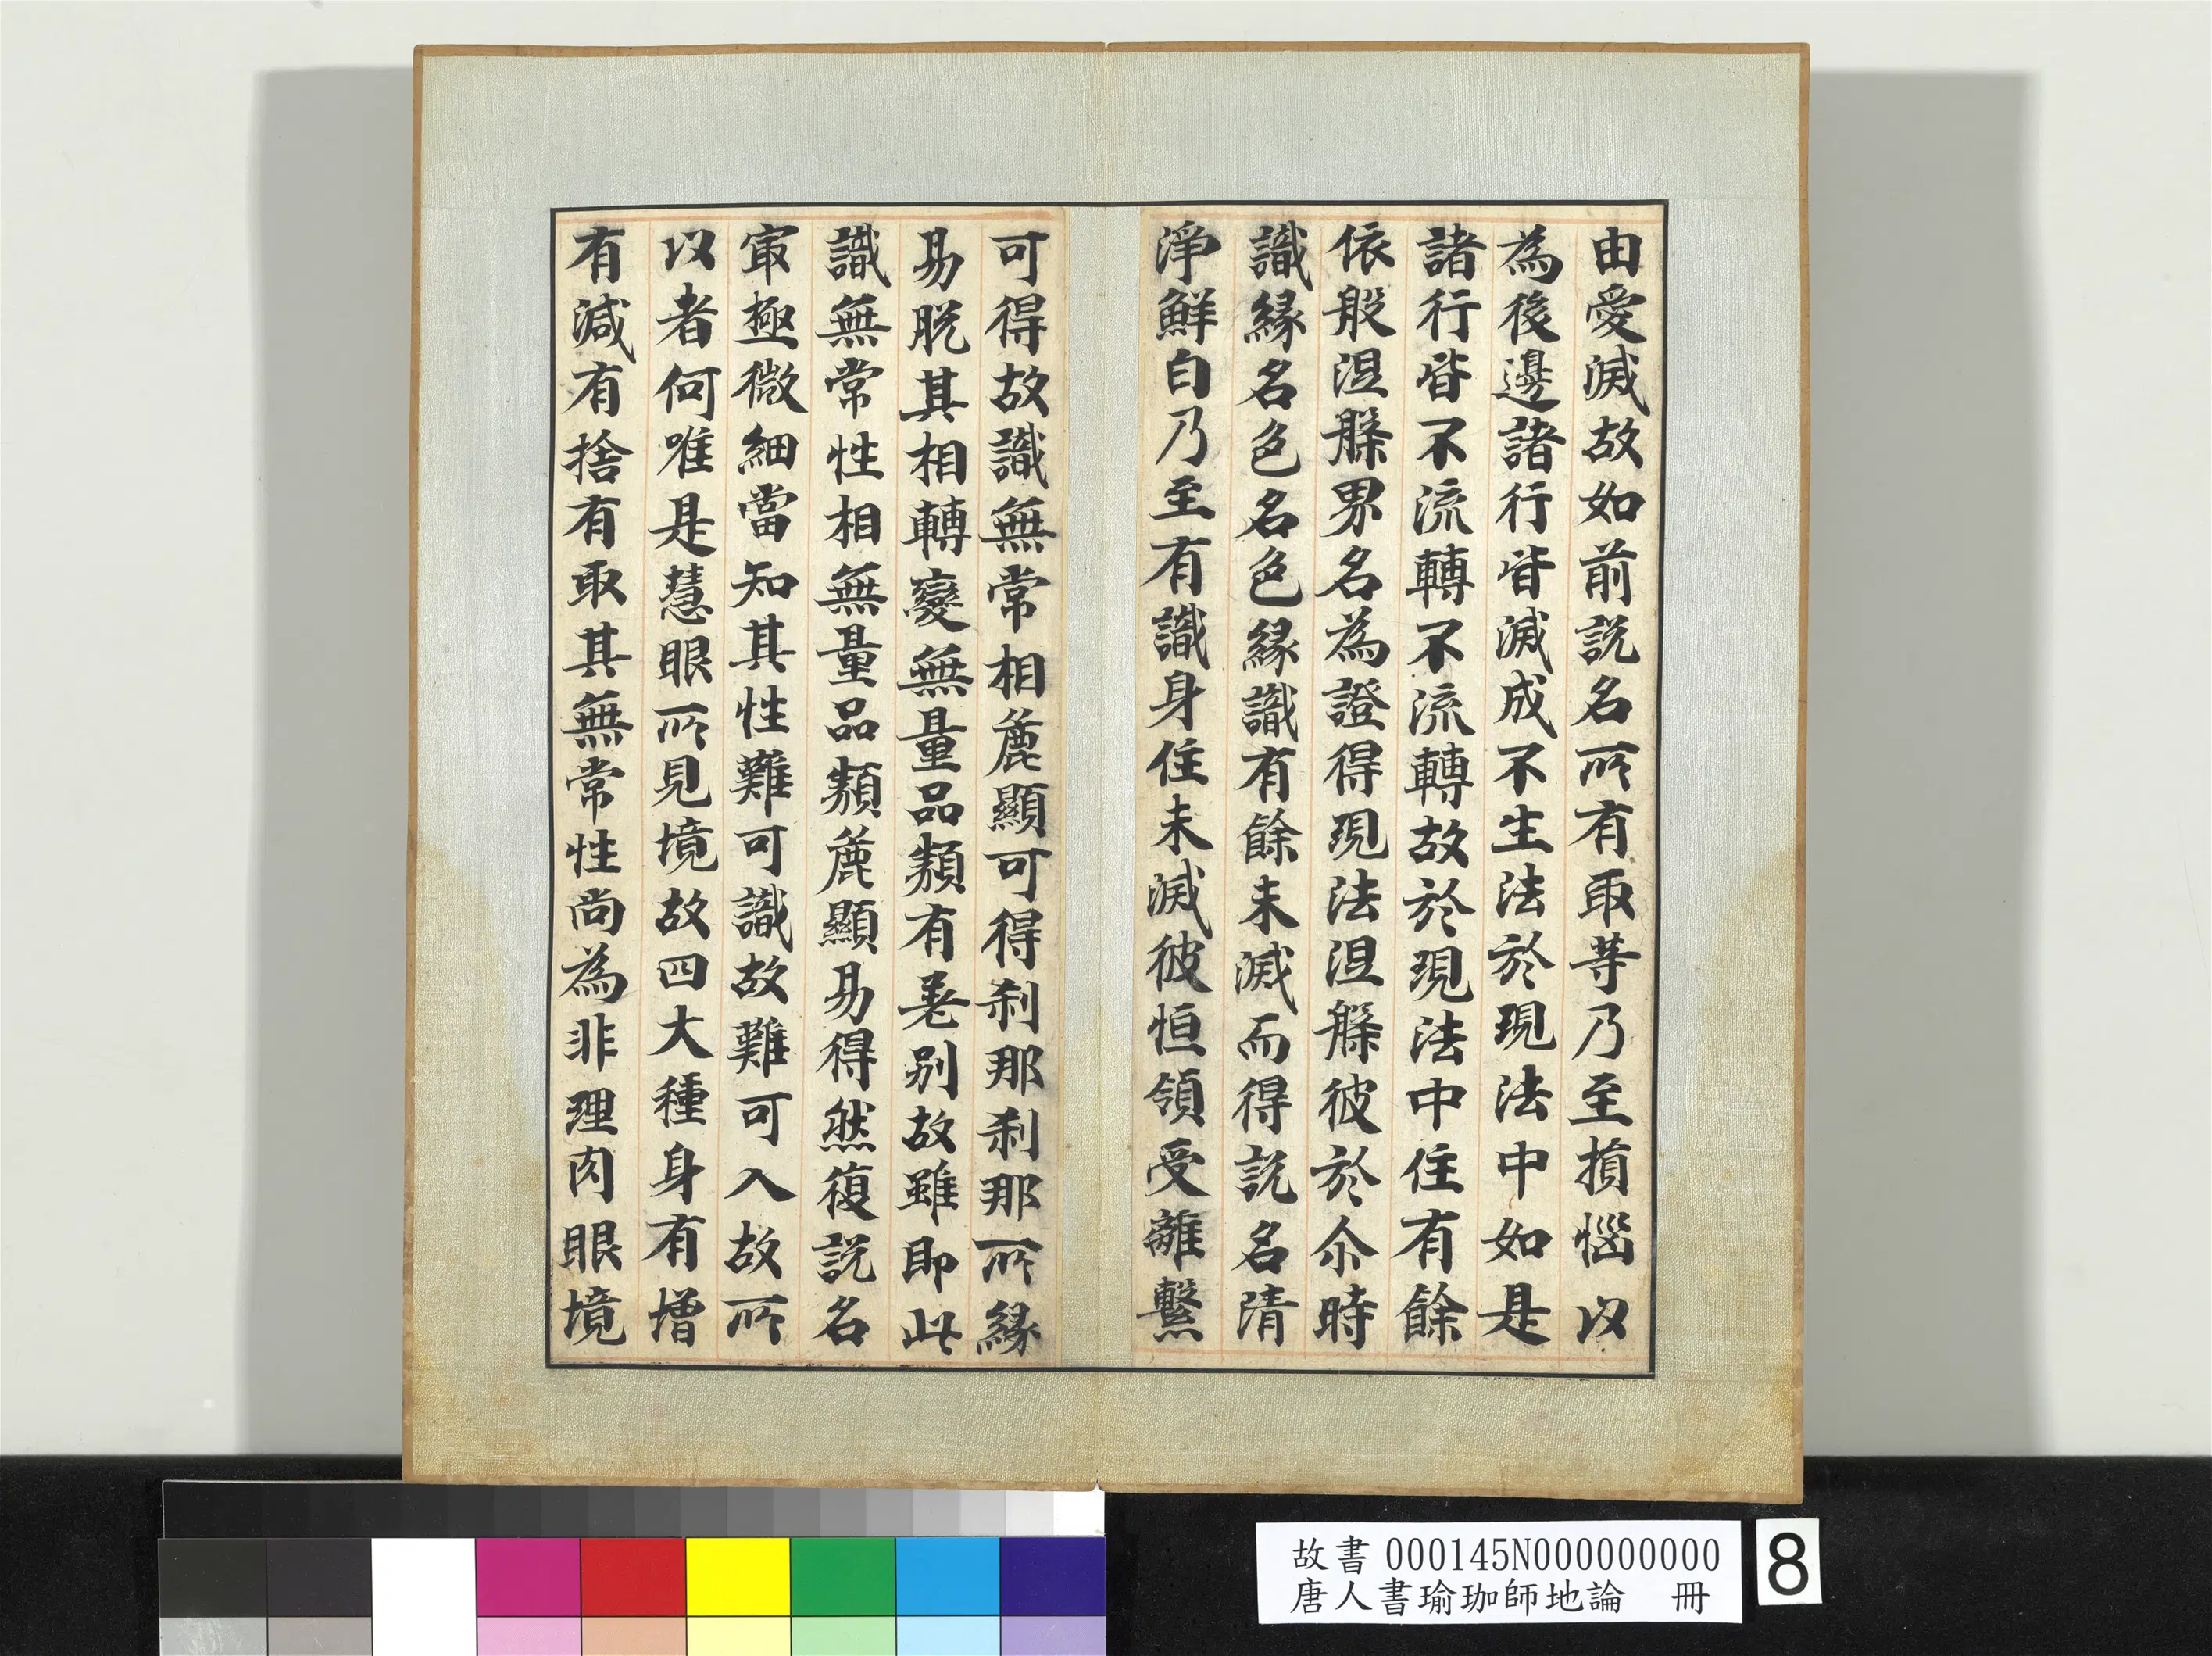 由愛滅故如前説名所有取等乃至損惱以
為後邊諸行皆滅成不生法於現法中如是
諸行皆不流轉不流轉故於現法中住有餘
依般涅槃界名為證得現法涅槃彼於尒時
識緣名色名色緣識有餘未滅而得説名清
淨鮮白乃至有識身住未滅彼恒領受離繫
可得故識無常相麁顯可得刹那刹那所緣
易脱其相轉變無量品類有差別故雖即此
識無常性相無量品類麁顯易得然復説名
㝡極微細當知其性難可識故難可入故所
以者何唯是慧眼所見境故四大種身有增
有減有捨有取其無常性尚為非理肉眼境
故書 000145N000000000
唐人書瑜珈師地論 冊
8